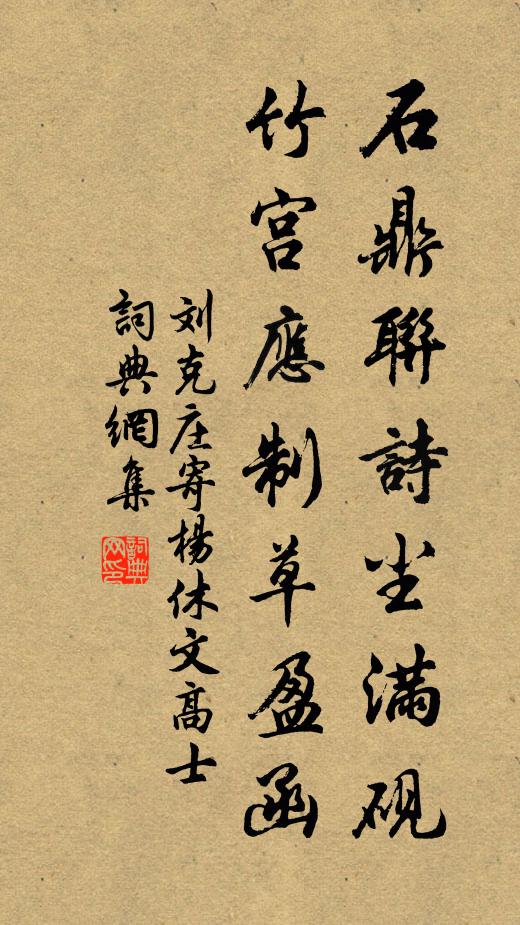 石鼎聯詩尘满硯
竹宫應制草盈函
刘克庄寄楊休文高士
詞典網集
詞典网印